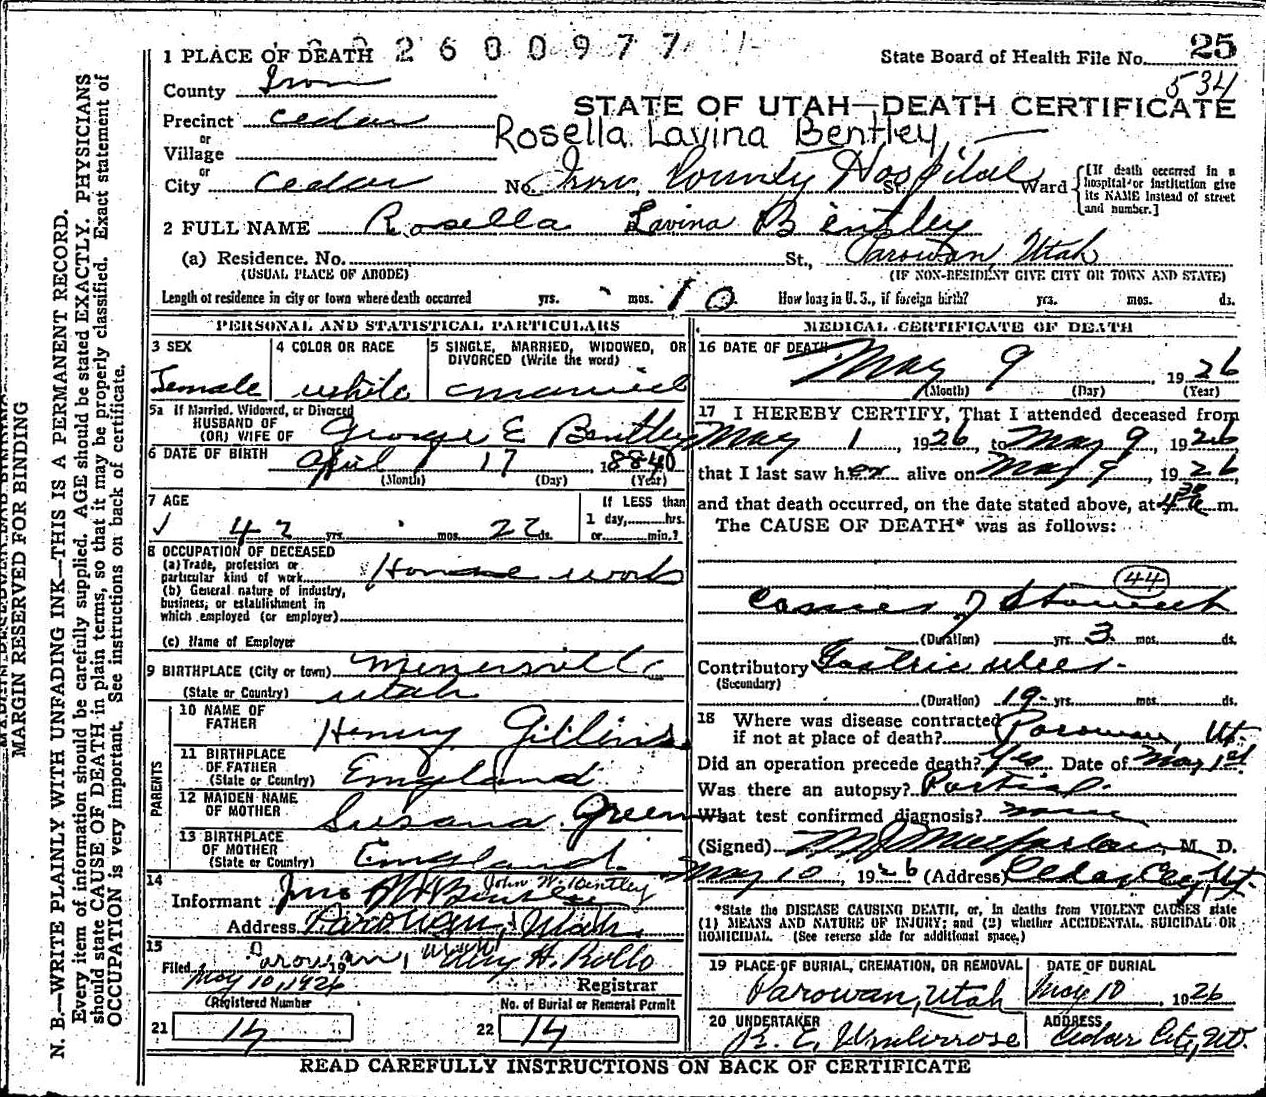 2600977
1 PLACE OF DEATH
State Board of Health File No. 25
County Iron
534
STATE OF UTAH—DEATH CERTIFICATE
Precinct Cedar
Rosella Lavina Bentley
or
Village
or
City Cedar No. Iron County Hospital St. Ward
[If death occurred in a hospital or institution give its NAME instead of street and number.]
2 FULL NAME Rosella Lavina Bentley
(a) Residence. No. St., Parowan, Utah
(USUAL PLACE OF ABODE) (IF NON-RESIDENT GIVE CITY OR TOWN AND STATE)
Length of residence in city or town where death occurred yrs. mos. 10 How long in U. S., if foreign birth? yrs. mos. ds.
PERSONAL AND STATISTICAL PARTICULARS
3 SEX 4 COLOR OR RACE 5 SINGLE, MARRIED, WIDOWED, OR DIVORCED (Write the word)
Female white married
5a If Married, Widowed, or Divorced
HUSBAND OF
(OR) WIFE OF George E Bentley
6 DATE OF BIRTH April 17 1884
(Month) (Day) (Year)
7 AGE If LESS than
42 yrs. mos. 22 ds. 1 day, hrs.
or min.?
8 OCCUPATION OF DECEASED
(a) Trade, profession or
particular kind of work House work
(b) General nature of industry,
business, or establishment in
which employed (or employer)
(c) Name of Employer
9 BIRTHPLACE (City or town) Minersville
(State or Country) Utah
PARENTS
10 NAME OF
FATHER Henry Gillins
11 BIRTHPLACE
OF FATHER
(State or Country) England
12 MAIDEN NAME
OF MOTHER Susana Green
13 BIRTHPLACE
OF MOTHER
(State or Country) England
14
Informant John W. Bentley
Address Parowan, Utah
15
Filed Parowan, 19
May 10, 1926 H. Rollo
Registrar
Registered Number No. of Burial or Removal Permit
21 14 22 14
MEDICAL CERTIFICATE OF DEATH
16 DATE OF DEATH
May 9 1926
(Month) (Day) (Year)
17 I HEREBY CERTIFY, That I attended deceased from
May 1, 1926, to May 9, 1926
that I last saw her alive on May 9, 1926,
and that death occurred, on the date stated above, at 4 30 a m.
The CAUSE OF DEATH* was as follows:
44
Cancer of Stomach
(Duration) yrs. 3 mos. ds.
Contributory Gastric ulcer
(Secondary)
(Duration) 19 yrs. mos. ds.
18 Where was disease contracted
if not at place of death? Parowan, Ut.
Did an operation precede death? Yes Date of May 1st
Was there an autopsy? Partial
What test confirmed diagnosis? none
(Signed) M J Macfarlane, M. D.
May 10, 1926 (Address) Cedar City, Ut.
*State the DISEASE CAUSING DEATH, or, in deaths from VIOLENT CAUSES state
(1) MEANS AND NATURE OF INJURY; and (2) whether ACCIDENTAL, SUICIDAL OR
HOMICIDAL. (See reverse side for additional space.)
19 PLACE OF BURIAL, CREMATION, OR REMOVAL DATE OF BURIAL
Parowan, Utah May 10, 1926
20 UNDERTAKER ADDRESS
R. E. Winterrose Cedar City, Ut.
READ CAREFULLY INSTRUCTIONS ON BACK OF CERTIFICATE
MARGIN RESERVED FOR BINDING
N. B.—WRITE PLAINLY WITH UNFADING INK—THIS IS A PERMANENT RECORD.
Every item of information should be carefully supplied. AGE should be stated EXACTLY. PHYSICIANS
should state CAUSE OF DEATH in plain terms, so that it may be properly classified. Exact statement of
OCCUPATION is very important. See instructions on back of certificate.